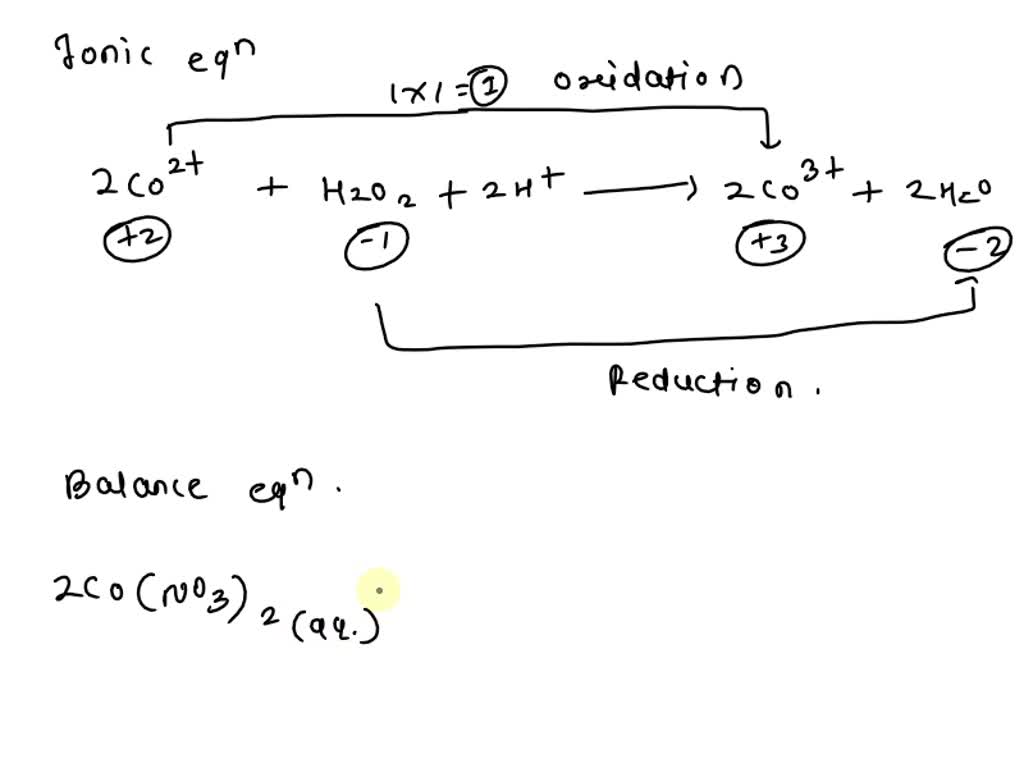 Ionic eqⁿ
1×1 = 1 oxidation
2Co²⁺ + H₂O₂ + 2H⁺ ⟶ 2Co³⁺ + 2H₂O
+2 -1 +3 -2
Reduction.
Balance eqⁿ.
2Co(NO₃)₂(aq.)